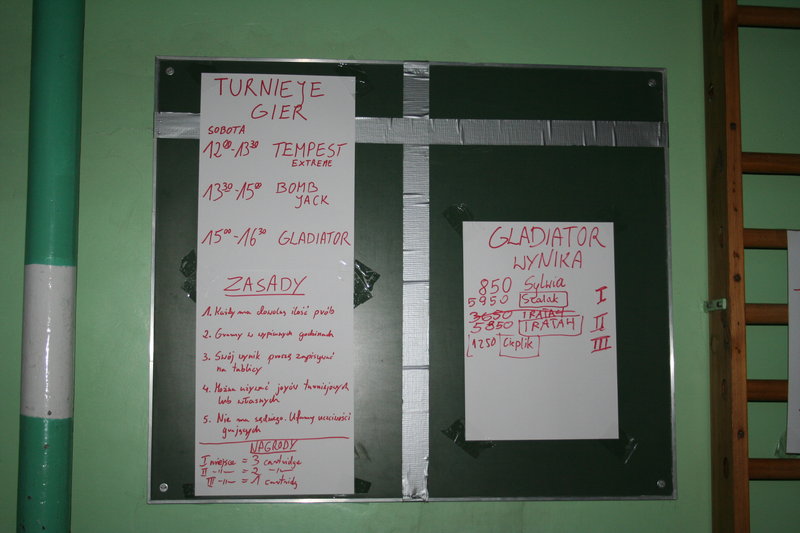 TURNIEJE
GIER
SOBOTA
12⁰⁰-13³⁰ TEMPEST
EXTREME
13³⁰-15⁰⁰ BOMB
JACK
15⁰⁰-16³⁰ GLADIATOR
ZASADY
1. Każdy ma dowolną ilość prób
2. Gramy w wypisanych godzinach
3. Swój wynik proszę zapisywać
na tablicy
4. Można używać joyów turniejowych
lub własnych
5. Nie ma sędziego. Ufamy uczciwości
grających
NAGRODY
I miejsce = 3 cartridge
II -"- = 2 -"-
III -"- = 1 cartridge
GLADIATOR
WYNIKA
850 Sylwia
5950 Scalak I
3650 IRATAH
5850 IRATAH II
1250 Cieplik III